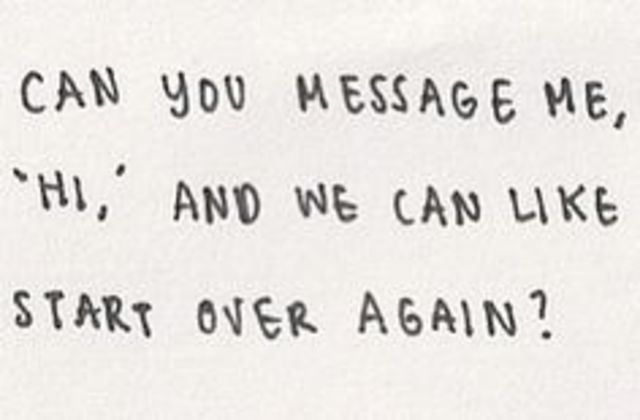 CAN YOU MESSAGE ME,
'HI,' AND WE CAN LIKE
START OVER AGAIN?